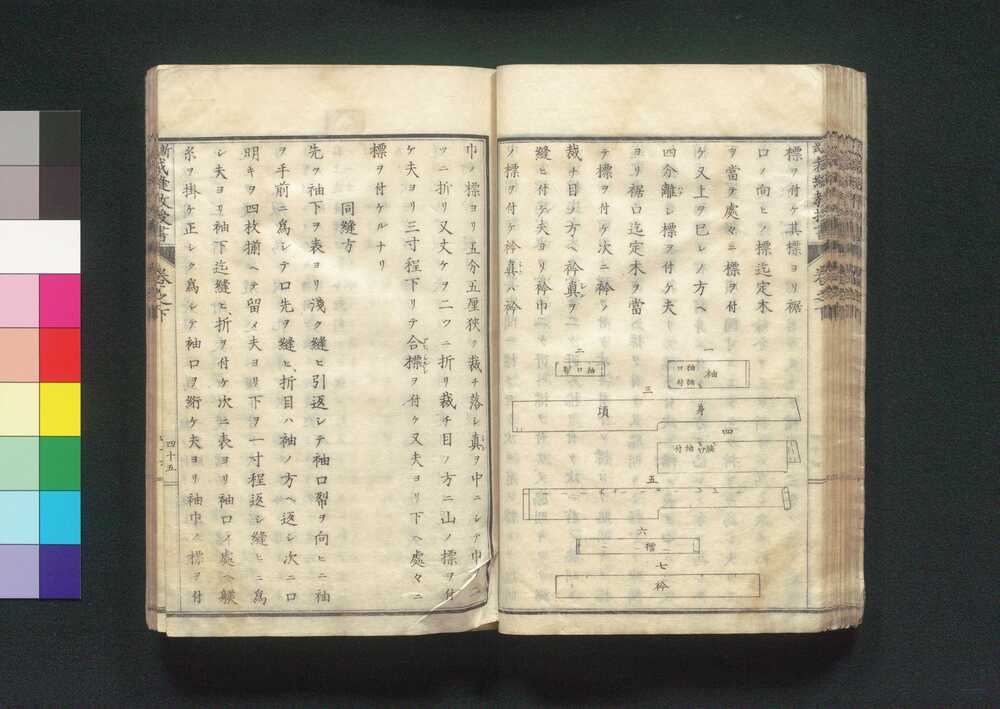 標ヲ付ケ其標ヨリ裾
口ノ向ヒノ標迄定木
ヲ當テ處々ニ標ヲ付
ケ又上ヲ巳レノ方ヘ
四分離シ標ヲ付ケ夫
ヨリ裾口迄定木ヲ當
テ標ヲ付ケ次ニ衿ノ
裁チ目ノ方ヘ衿真ヲ
縫ヒ付ケ夫ヨリ衿巾
ノ標ヲ付ケ衿真ハ衿
一
袖
袖口
袖付
二
袖口
三
身
項
四
袖付
五
六
七
衿
巾ノ標ヨリ五分五厘狹ク裁チ落シ真ヲ中ニシテ巾ニ
ツニ折リ又丈ケヲ二ツニ折リ裁チ目ノ方ニ山ノ標ヲ付
ケ夫ヨリ三寸程下リテ合標ヲ付ケ又夫ヨリ下ヘ處々ニ
標ヲ付ケルナリ
同縫方
先ツ袖下ヲ表ヨリ淺ク縫ヒ引返シテ袖口ヲ向ヒニ袖
ヲ手前ニ爲シテ口先ヲ縫ヒ折目ハ袖ノ方ヘ返シ次ニ口
明キヲ四枚揃ヘテ留メ夫ヨリ下ヲ一寸程返シ縫ヒニ爲
シ夫ヨリ袖下迄縫ヒ折ヲ付ケ次ニ表ヨリ袖口ノ處ヘ躾
糸ヲ掛ケ正シク爲シテ袖口ヲ絎ケ夫ヨリ袖巾ノ標ヲ付
裁縫教授書
卷之下
四十五